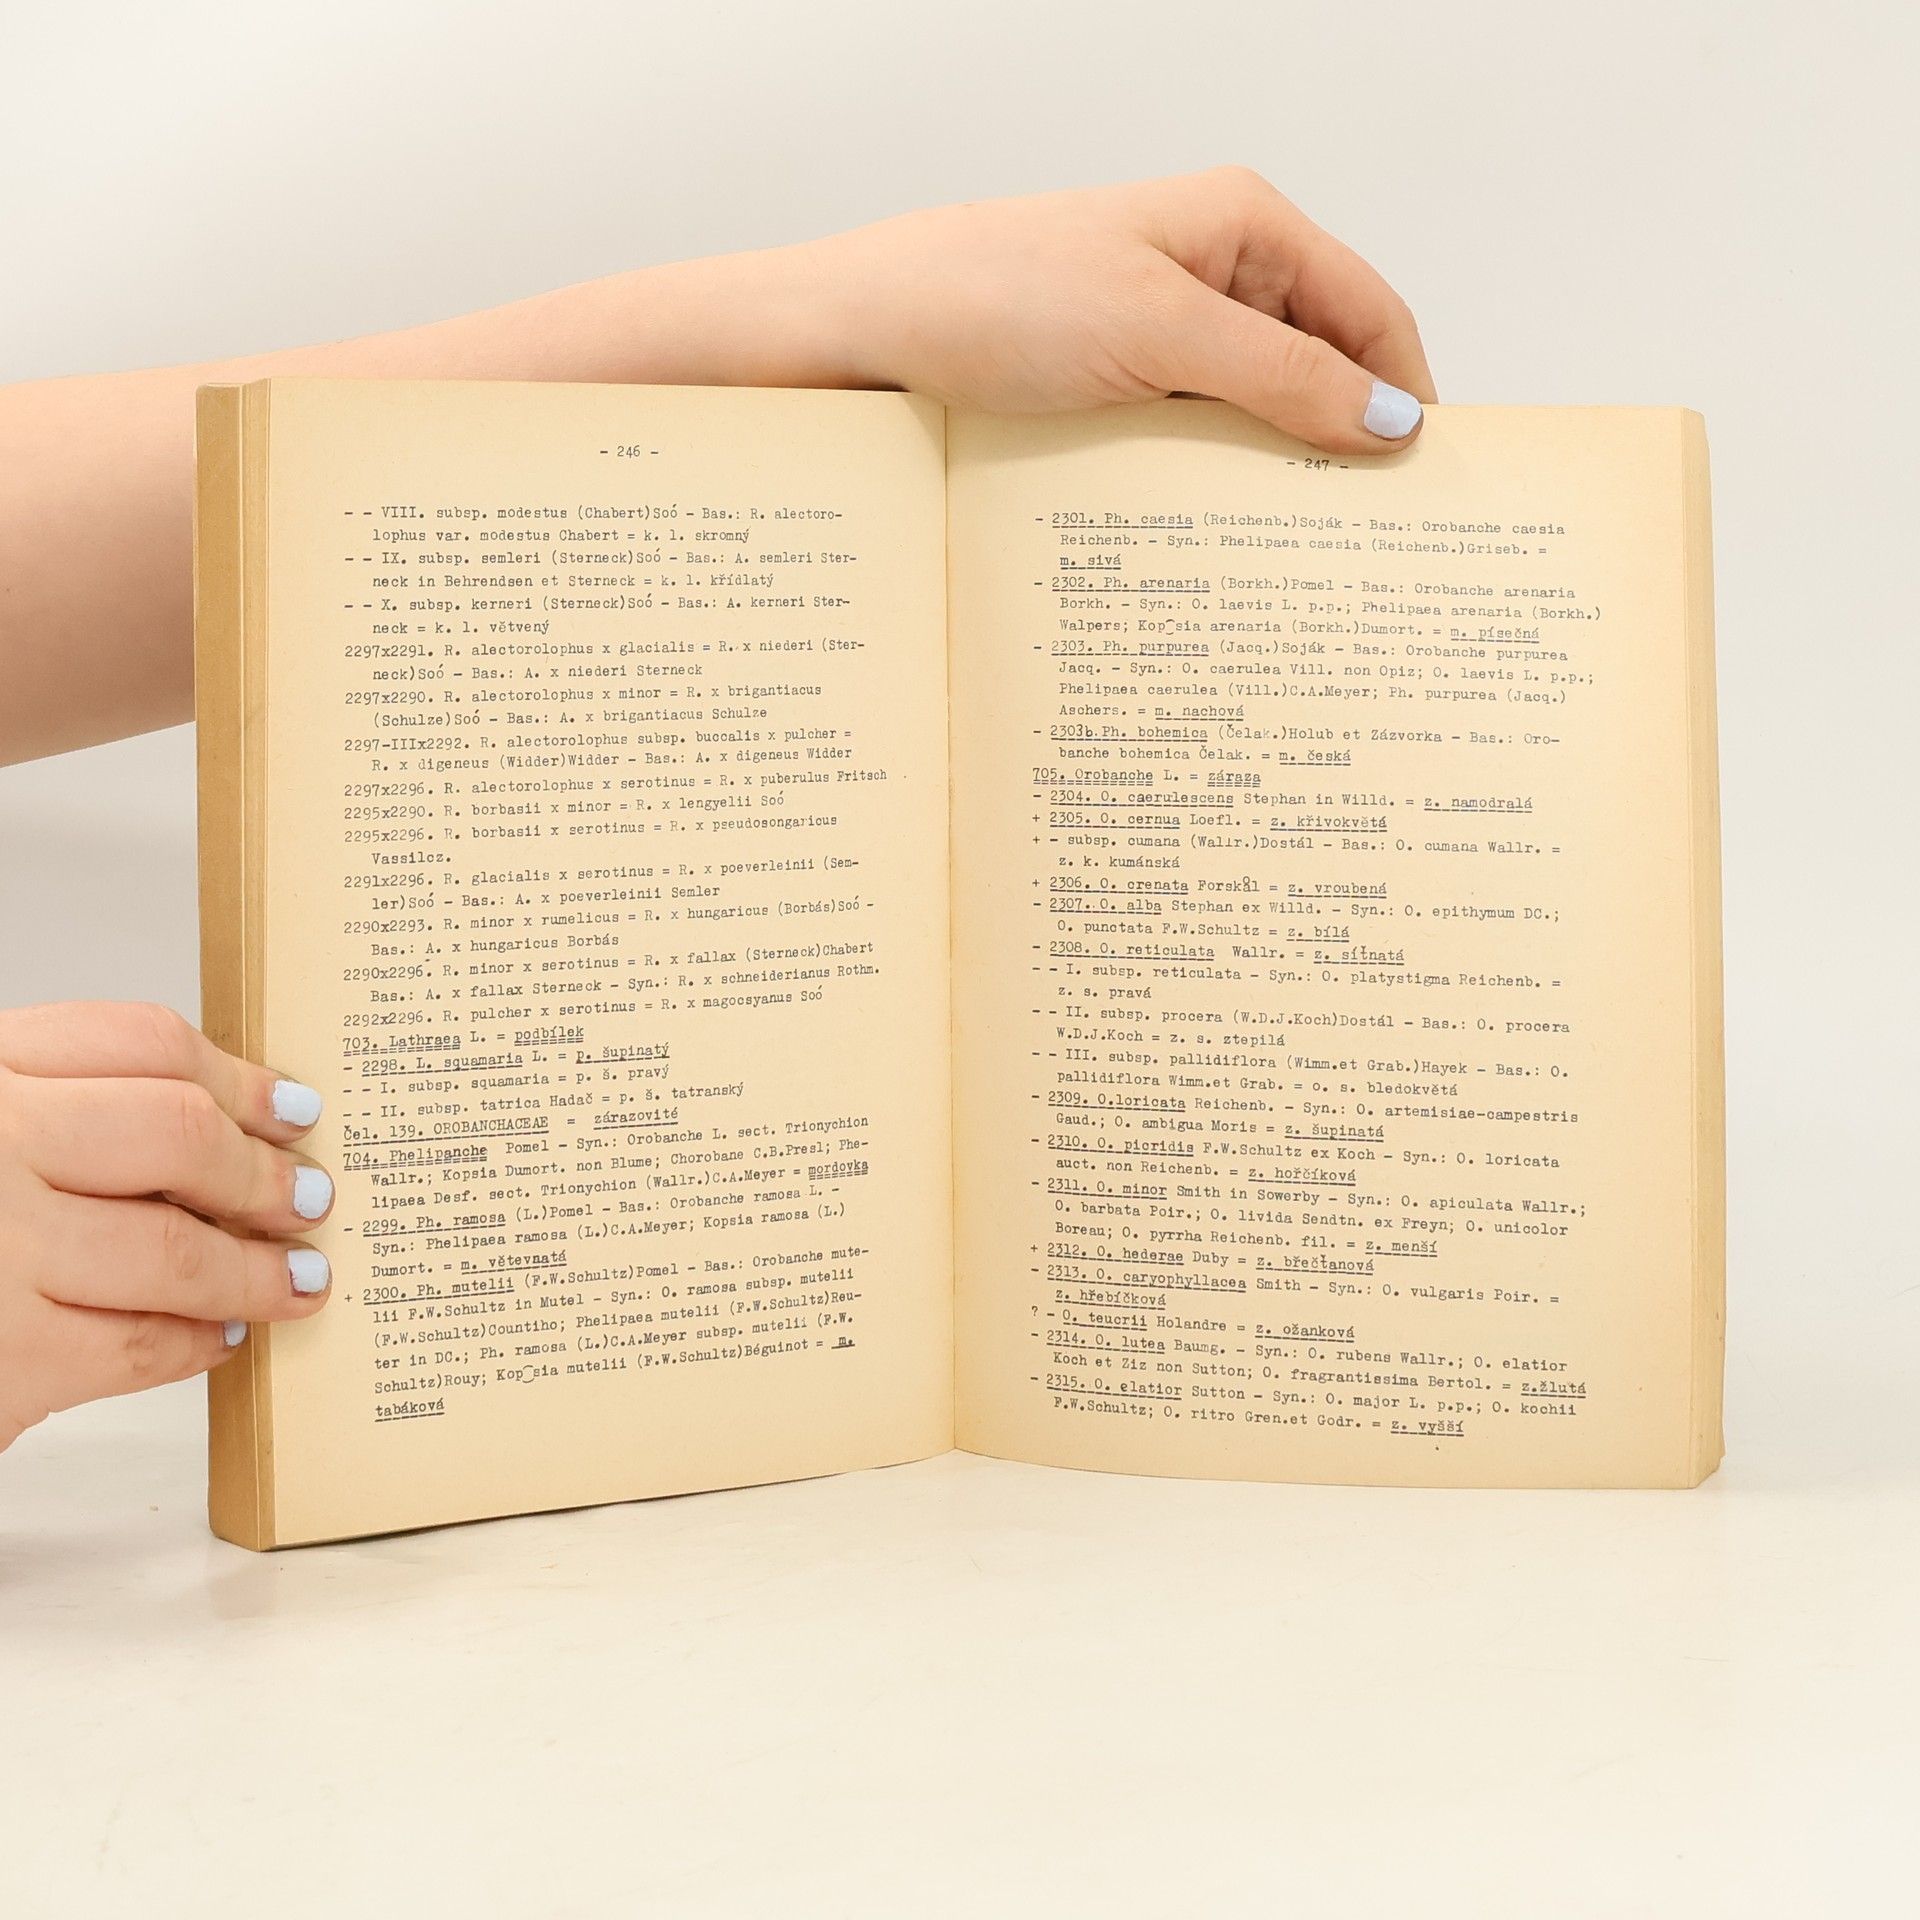 - 246 -
- - VIII. subsp. modestus (Chabert)Soó - Bas.: R. alectoro-
lophus var. modestus Chabert = k. l. skromný
- - IX. subsp. semleri (Sterneck)Soó - Bas.: A. semleri Ster-
neck in Behrendsen et Sterneck = k. l. křídlatý
- - X. subsp. kerneri (Sterneck)Soó - Bas.: A. kerneri Ster-
neck = k. l. větvený
2297x2291. R. alectorolophus x glacialis = R. x niederi (Ster-
neck)Soó - Bas.: A. x niederi Sterneck
2297x2290. R. alectorolophus x minor = R. x brigantiacus
(Schulze)Soó - Bas.: A. x brigantiacus Schulze
2297-IIIx2292. R. alectorolophus subsp. buccalis x pulcher =
R. x digeneus (Widder)Widder - Bas.: A. x digeneus Widder
2297x2296. R. alectorolophus x serotinus = R. x puberulus Fritsch
2295x2290. R. borbasii x minor = R. x lengyelii Soó
2295x2296. R. borbasii x serotinus = R. x pseudosongaricus
Vassilcz.
2291x2296. R. glacialis x serotinus = R. x poeverleinii (Sem-
ler)Soó - Bas.: A. x poeverleinii Semler
2290x2293. R. minor x rumelicus = R. x hungaricus (Borbás)Soó -
Bas.: A. x hungaricus Borbás
2290x2296. R. minor x serotinus = R. x fallax (Sterneck)Chabert
Bas.: A. x fallax Sterneck - Syn.: R. x schneiderianus Rothm.
2292x2296. R. pulcher x serotinus = R. x magocsyanus Soó
703. Lathraea L. = podbílek
- 2298. L. squamaria L. = p. šupinatý
- - I. subsp. squamaria = p. š. pravý
- - II. subsp. tatrica Hadač = p. š. tatranský
Čel. 139. OROBANCHACEAE = zárazovité
704. Phelipanche Pomel - Syn.: Orobanche L. sect. Trionychion
Wallr.; Kopsia Dumort. non Blume; Chorobane C.B.Presl; Phe-
lipaea Desf. sect. Trionychion (Wallr.)C.A.Meyer = mordovka
- 2299. Ph. ramosa (L.)Pomel - Bas.: Orobanche ramosa L. -
Syn.: Phelipaea ramosa (L.)C.A.Meyer; Kopsia ramosa (L.)
Dumort. = m. větevnatá
+ 2300. Ph. mutelii (F.W.Schultz)Pomel - Bas.: Orobanche mute-
lii F.W.Schultz in Mutel - Syn.: O. ramosa subsp. mutelii
(F.W.Schultz)Countiho; Phelipaea mutelii (F.W.Schultz)Reu-
ter in DC.; Ph. ramosa (L.)C.A.Meyer subsp. mutelii (F.W.
Schultz)Rouy; Kopsia mutelii (F.W.Schultz)Béguinot = m.
tabáková
- 247 -
- 2301. Ph. caesia (Reichenb.)Soják - Bas.: Orobanche caesia
Reichenb. - Syn.: Phelipaea caesia (Reichenb.)Griseb. =
m. sivá
- 2302. Ph. arenaria (Borkh.)Pomel - Bas.: Orobanche arenaria
Borkh. - Syn.: O. laevis L. p.p.; Phelipaea arenaria (Borkh.)
Walpers; Kopsia arenaria (Borkh.)Dumort. = m. písečná
- 2303. Ph. purpurea (Jacq.)Soják - Bas.: Orobanche purpurea
Jacq. - Syn.: O. caerulea Vill. non Opiz; O. laevis L. p.p.;
Phelipaea caerulea (Vill.)C.A.Meyer; Ph. purpurea (Jacq.)
Aschers. = m. nachová
- 2303b.Ph. bohemica (Čelak.)Holub et Zázvorka - Bas.: Oro-
banche bohemica Čelak. = m. česká
705. Orobanche L. = záraza
- 2304. O. caerulescens Stephan in Willd. = z. namodralá
+ 2305. O. cernua Loefl. = z. křivokvětá
+ - subsp. cumana (Wallr.)Dostál - Bas.: O. cumana Wallr. =
z. k. kumánská
+ 2306. O. crenata Forskål = z. vroubená
- 2307. O. alba Stephan ex Willd. - Syn.: O. epithymum DC.;
O. punctata F.W.Schultz = z. bílá
- 2308. O. reticulata Wallr. = z. síťnatá
- - I. subsp. reticulata - Syn.: O. platystigma Reichenb. =
z. s. pravá
- - II. subsp. procera (W.D.J.Koch)Dostál - Bas.: O. procera
W.D.J.Koch = z. s. ztepilá
- - III. subsp. pallidiflora (Wimm.et Grab.)Hayek - Bas.: O.
pallidiflora Wimm.et Grab. = o. s. bledokvětá
- 2309. O.loricata Reichenb. - Syn.: O. artemisiae-campestris
Gaud.; O. ambigua Moris = z. šupinatá
- 2310. O. picridis F.W.Schultz ex Koch - Syn.: O. loricata
auct. non Reichenb. = z. hořčíková
- 2311. O. minor Smith in Sowerby - Syn.: O. apiculata Wallr.;
O. barbata Poir.; O. livida Sendtn. ex Freyn; O. unicolor
Boreau; O. pyrrha Reichenb. fil. = z. menší
+ 2312. O. hederae Duby = z. břečťanová
- 2313. O. caryophyllacea Smith - Syn.: O. vulgaris Poir. =
z. hřebíčková
? - O. teucrii Holandre = z. ožanková
- 2314. O. lutea Baumg. - Syn.: O. rubens Wallr.; O. elatior
Koch et Ziz non Sutton; O. fragrantissima Bertol. = z.žlutá
- 2315. O. elatior Sutton - Syn.: O. major L. p.p.; O. kochii
F.W.Schultz; O. ritro Gren.et Godr. = z. vyšší